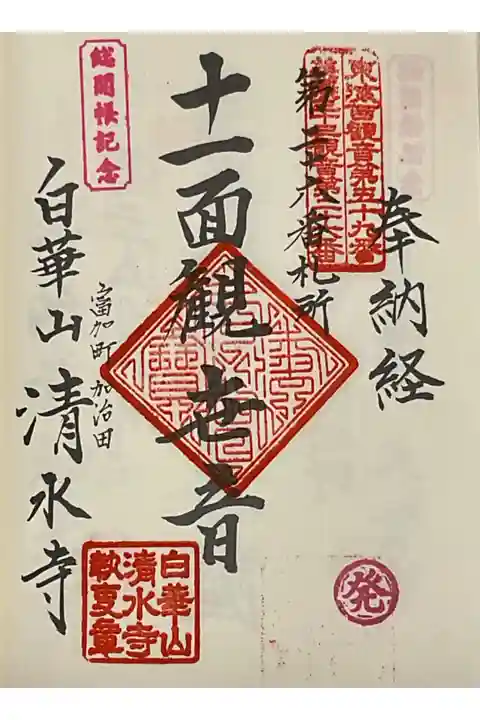 奉納経
東海百観音第五十九番
第二十六番札所
十一面観世音
富加町加治田
白華山清水寺
総開帳記念
白華山
清水寺
執事章
発